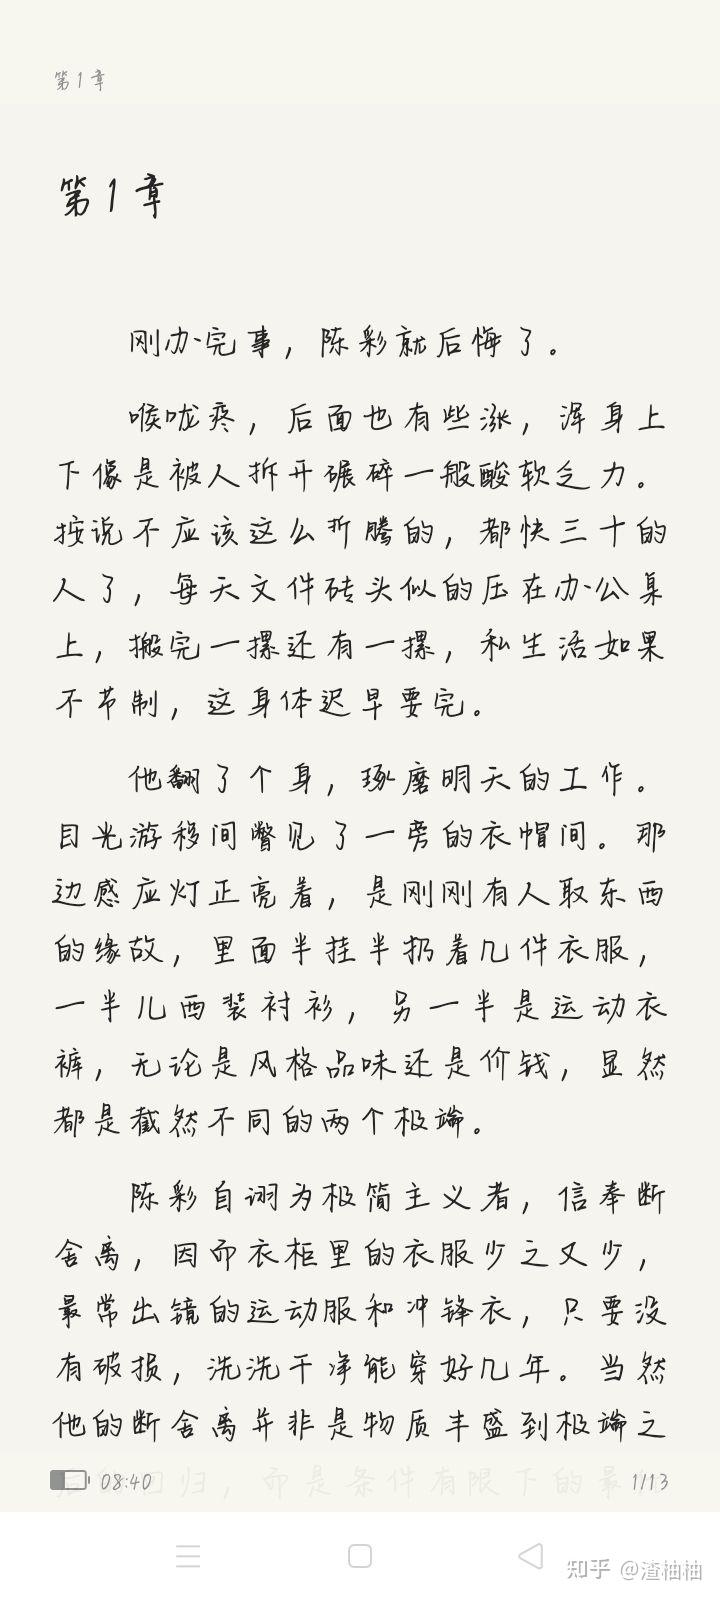 第1章
第1章
刚办完事，陈彩就后悔了。
喉咙疼，后面也有些涨，浑身上
下像是被人拆开碾碎一般酸软乏力。
按说不应该这么折腾的，都快三十的
人了，每天文件砖头似的压在办公桌
上，搬完一摞还有一摞，私生活如果
不节制，这身体迟早要完。
他翻了个身，琢磨明天的工作。
目光游移间瞥见了一旁的衣帽间。那
边感应灯正亮着，是刚刚有人取东西
的缘故，里面半挂半扔着几件衣服，
一半儿西装衬衫，另一半是运动衣
裤，无论是风格品味还是价钱，显然
都是截然不同的两个极端。
陈彩自诩为极简主义者，信奉断
舍离，因而衣柜里的衣服少之又少，
最常出镜的运动服和冲锋衣，只要没
有破损，洗洗干净能穿好几年。当然
他的断舍离并非是物质丰盛到极端之
后的回归，而是条件有限下的最
08:40
1/13
知乎 @渣柚柚